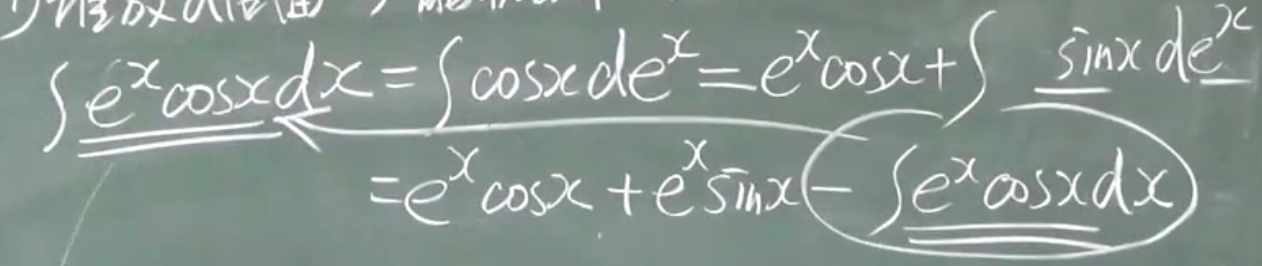 ∫e^x cosx dx = ∫cosx de^x = e^x cosx + ∫ sinx de^x
= e^x cosx + e^x sinx - ∫e^x cosx dx